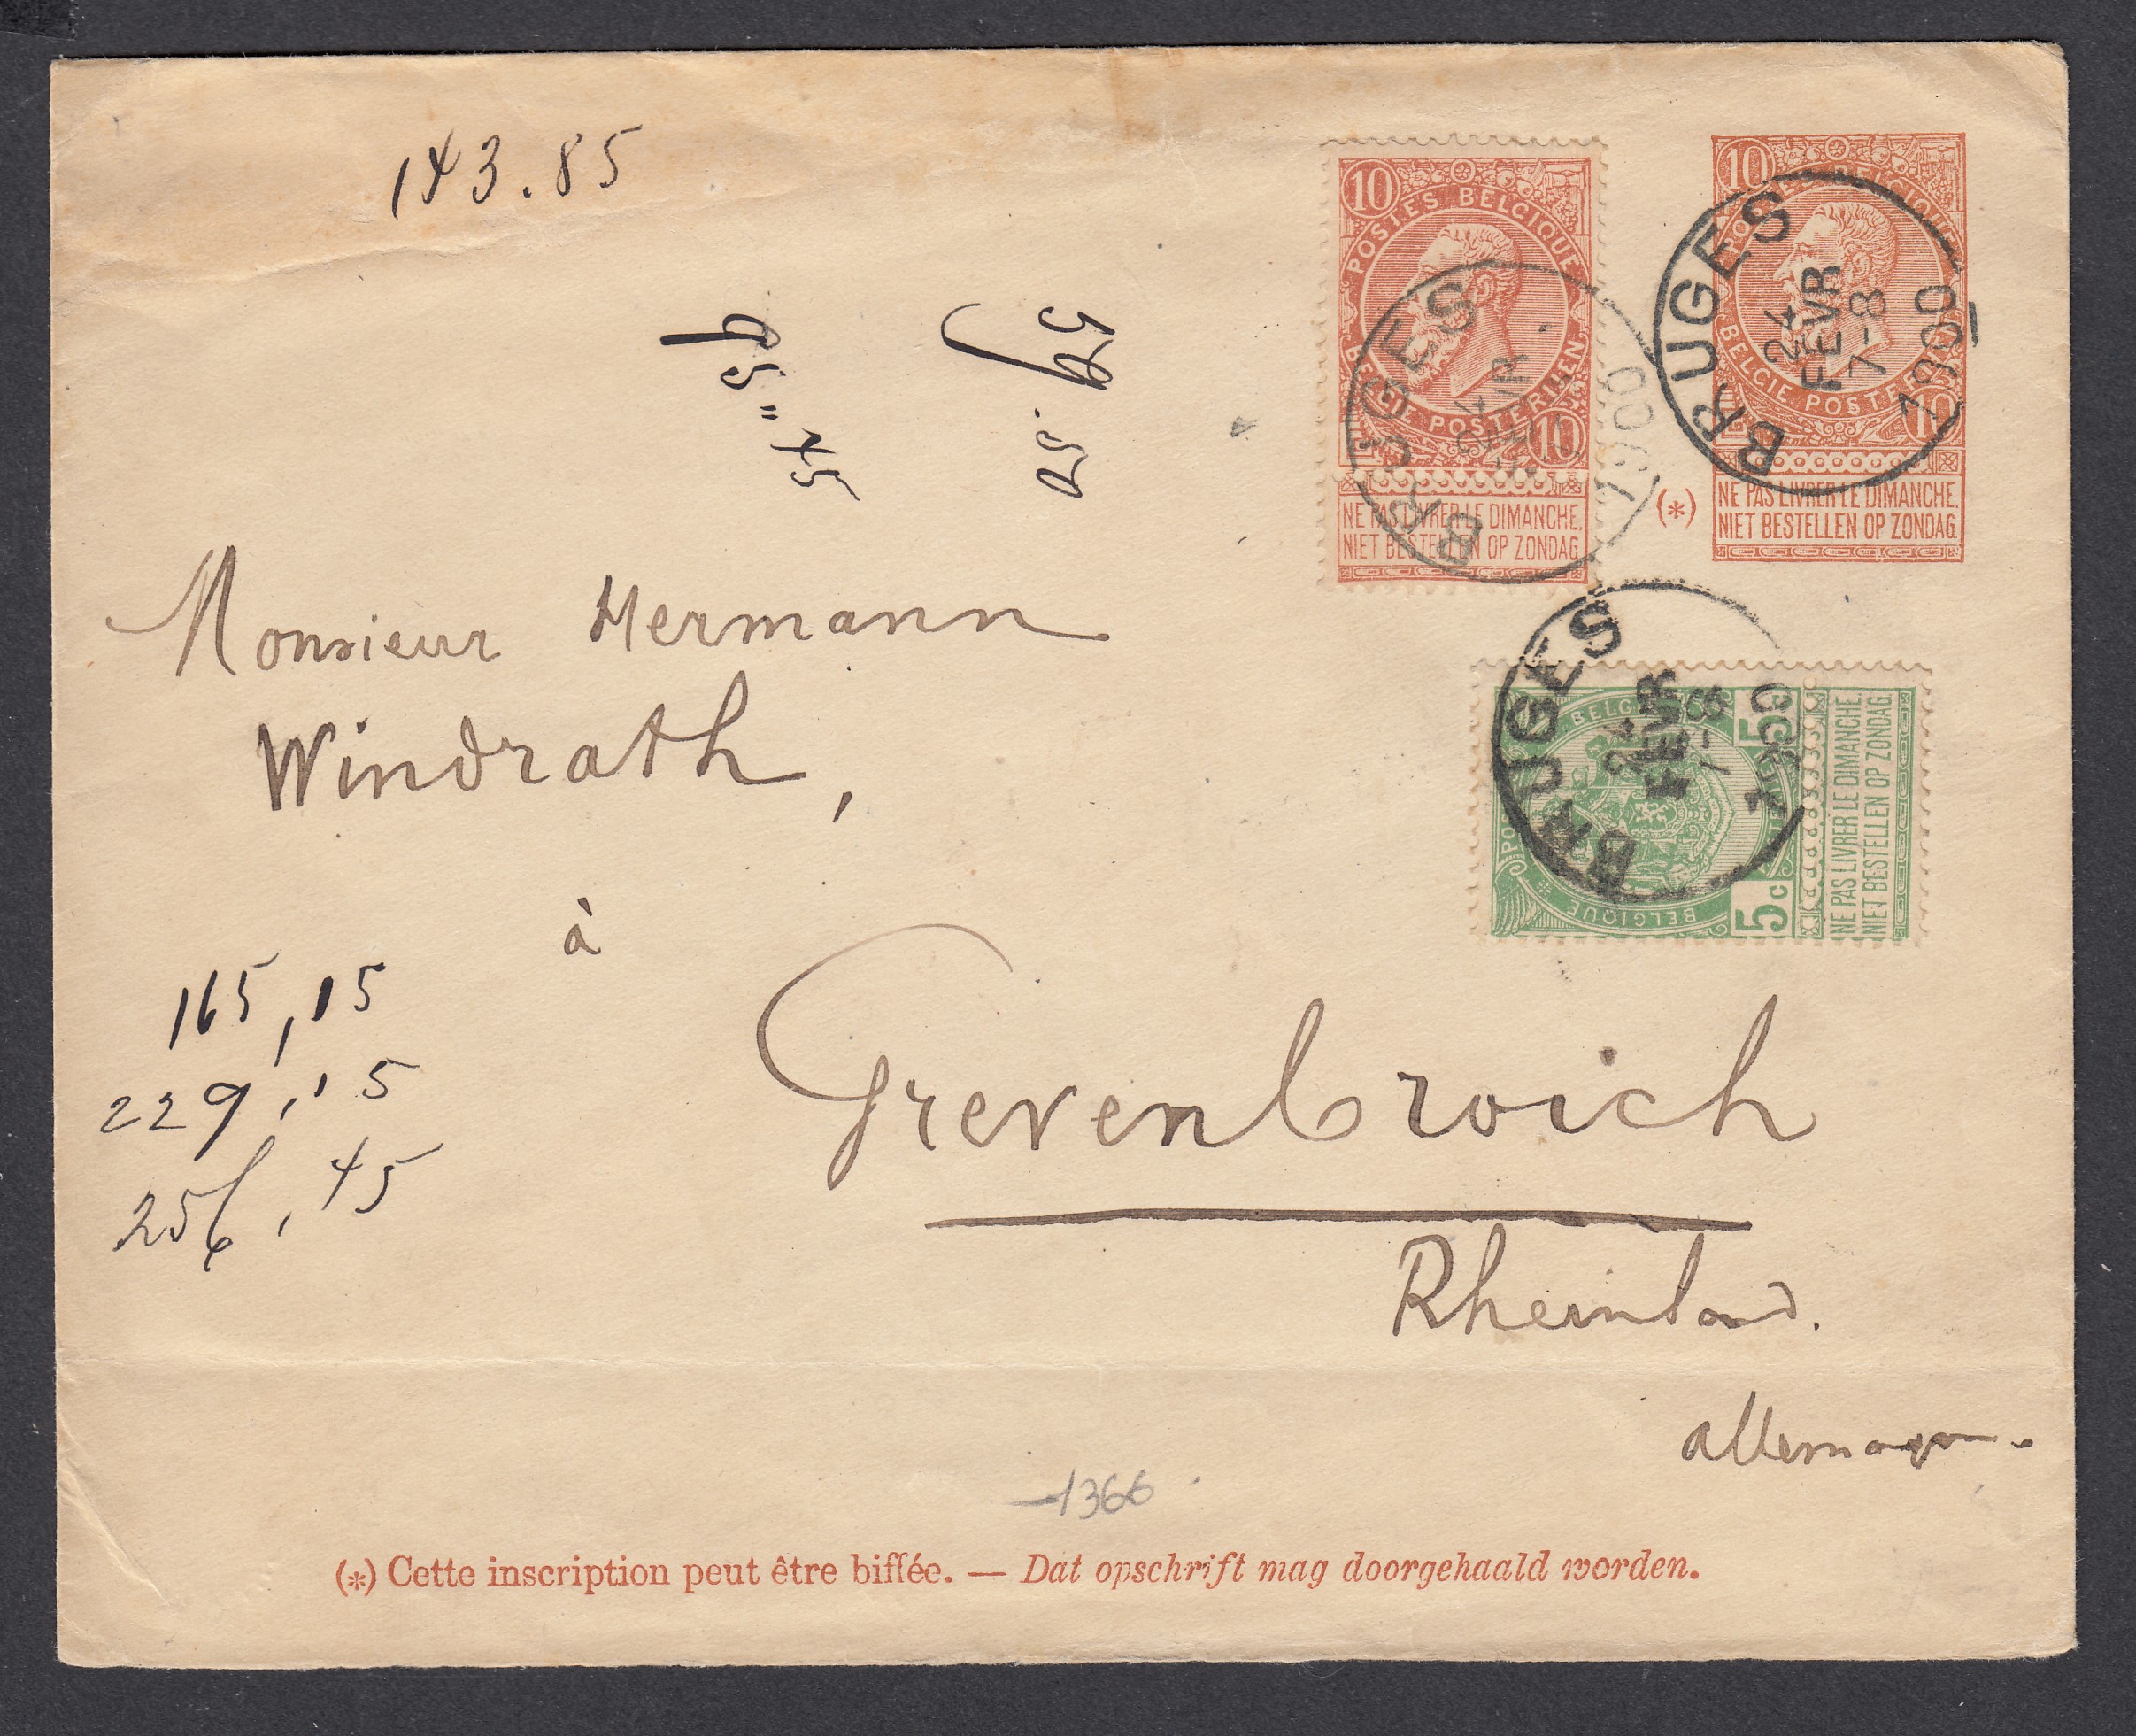 143.85
10
POSTES BELGIQUE
BELGIE POSTERIJEN
10
NE PAS LIVRER LE DIMANCHE.
NIET BESTELLEN OP ZONDAG
BRUGES
24
FEVR
1900
10
BELGIE POSTE
10
(*)
NE PAS LIVRER LE DIMANCHE.
NIET BESTELLEN OP ZONDAG
BRUGES
24
FEVR
7-8
1900
Monsieur Hermann
Windrath,
à
BELGIQUE
5c
5
NE PAS LIVRER LE DIMANCHE.
NIET BESTELLEN OP ZONDAG
BRUGES
24
FEVR
7-8
1900
165,15
229,15
256,45
Grevenbroich
Rheinland.
allemagne.
1366
(*) Cette inscription peut être biffée. — Dat opschrift mag doorgehaald worden.